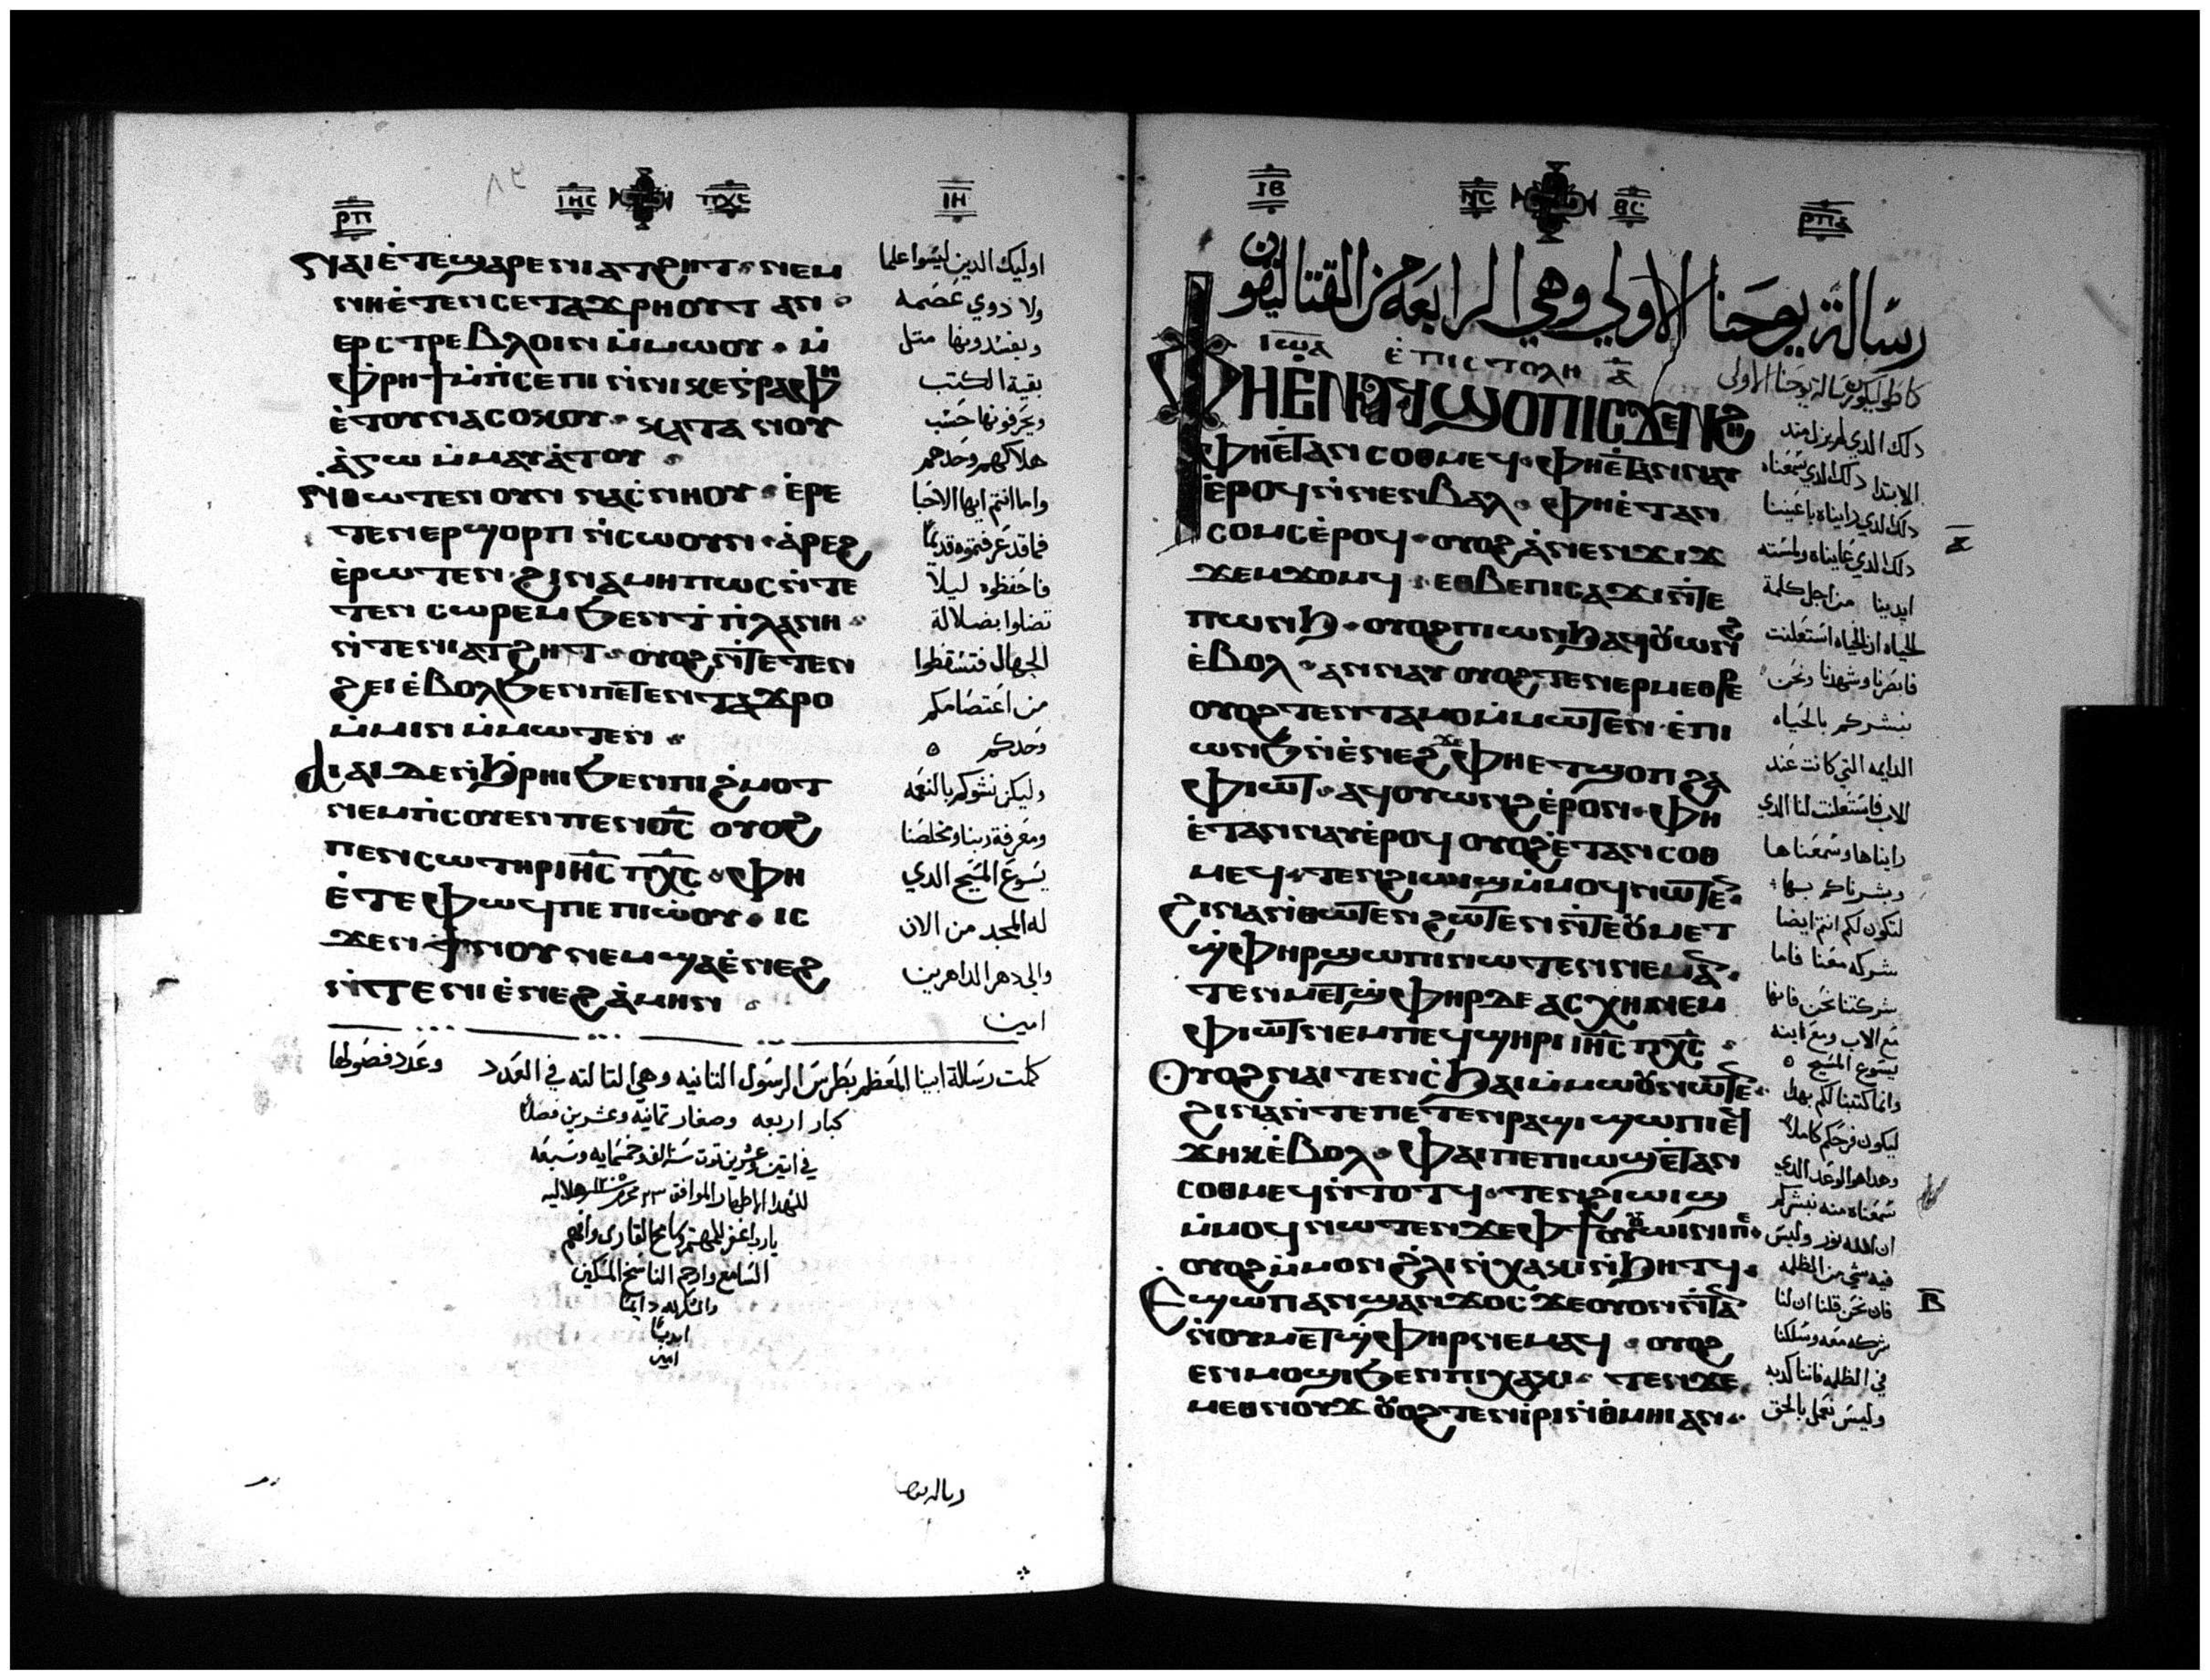 ⲣⲡ ⲓⲏⲥ ⲡⲭⲥ ⲓⲏ
ⲛⲁⲓ ⲉ̀ⲧⲉϣⲁⲣⲉⲛⲓⲁⲧϩⲏⲧ · ⲛⲉⲙ
ⲛⲏⲉ̀ⲧⲉⲛⲥⲉⲧⲁϫⲣⲏⲟⲩⲧ ⲁⲛ ·
ⲉⲣⲥⲧⲣⲉⲃⲗⲟⲓⲛ ⲙ̀ⲙⲱⲟⲩ · ⲙ̀
ⲫ̀ⲣⲏϯ ⲙ̀ⲡ̀ⲥⲉⲡⲓ ⲛ̀ⲛⲓⲕⲉⲅⲣⲁⲫⲏ
ⲉ̀ⲧⲟⲩⲛⲁⲥⲟϫⲟⲩ · ⲕⲁⲧⲁ ⲛⲟⲩ
ⲁ̀ⲅⲱ ⲙ̀ⲙⲁⲩⲁ̀ⲧⲟⲩ ·
ⲛ̀ⲑⲱⲧⲉⲛ ⲟⲩⲛ ⲛⲁⲥ̀ⲛⲏⲟⲩ · ⲉ̀ⲣⲉ
ⲧⲉⲛⲉⲣϣⲟⲣⲡ ⲛ̀ⲥⲱⲟⲩⲛ · ⲁ̀ⲣⲉϩ
ⲉ̀ⲣⲱⲧⲉⲛ · ϩⲓⲛⲁ ⲙⲏⲡⲱⲥ ⲛ̀ⲧⲉ
ⲧⲉⲛ ⲥⲱⲣⲉⲙ ϧⲉⲛϯⲡ̀ⲗⲁⲛⲏ ·
ⲛ̀ⲧⲉⲛⲓⲁⲧϩⲏⲧ · ⲟⲩⲟϩ ⲛ̀ⲧⲉⲧⲉⲛ
ϩⲉⲓ ⲉ̀ⲃⲟⲗϧⲉⲛⲡⲉⲧⲉⲛⲧⲁϫⲣⲟ
ⲙ̀ⲙⲓⲛ ⲙ̀ⲙⲱⲧⲉⲛ ·
ⲁⲓⲁⲓ ⲇⲉ ⲛ̀ϩ̀ⲣⲏⲓ ϧⲉⲛⲡⲓϩ̀ⲙⲟⲧ
ⲛⲉⲙⲡ̀ⲥⲟⲩⲉⲛ ⲡⲉⲛⲟ̅ⲥ̅ ⲟⲩⲟϩ
ⲡⲉⲛⲥⲱⲧⲏⲣ ⲓⲏ̅ⲥ̅ ⲡⲭ̅ⲥ̅ · ⲫⲏ
ⲉ̀ⲧⲉ ⲫⲱϥ ⲡⲉ ⲡⲓⲱ̀ⲟⲩ · ⲓⲥ
ϫⲉⲛ ϯⲛⲟⲩ ⲛⲉⲙ ϣⲁⲉ̀ⲛⲉϩ
ⲛ̀ⲧⲉⲛⲓⲉ̀ⲛⲉϩ ⲁ̀ⲙⲏⲛ ·
اوليك الدين ليسوا علما
ولا دوي عصمه
ويفسدونها متل
بقية الكتب
ويحرفونها حسب
هلاكهم وحدهم
واما انتم ايها الاحبا
فما قد عرفتموه قديمًا
فاحفظوه ليلا
تضلوا بضلالة
الجهال فتسقطوا
من اعتصامكم
وحدكم ٥
وليكن نشوكم بالنعمه
ومعرفة ربنا ومخلصنا
يسوع المسيح الدي
له المجد من الان
والى دهر الداهرين
امين
كملت رسالة ابينا المعظم بطرس الرسول التانيه وهي التالته في العدد وعدد فصولها
كبار اربعه وصغار تمانيه وعشرين فصلًا
في اتنين وعشرين توت سنة الف وخمسمايه وسبعه
للشهدا الاطهار الموافق
يارب اغفر للمهتم وسامح القاري وافهم
السامع وارحم الناسخ المسكين
والشكر لله دايمًا
ابديًا
امين
ⲓⲃ ⲩⲥ ⲑⲥ ⲣⲡⲁ
رسالة يوحنا الاولي وهي الرابعه من القتاليقون
ⲓⲱⲁ ⲉ̀ⲡⲓⲥⲧⲟⲗⲏ ⲁ̅
ⲫⲏⲉⲛⲁϥϣⲟⲡ ⲓⲥϫⲉⲛϩⲏ
ⲫⲏⲉ̀ⲧⲁⲛⲥⲟⲑⲙⲉϥ · ⲫⲏⲉ̀ⲧⲁⲛⲛⲁⲩ
ⲉ̀ⲣⲟϥ ⲛ̀ⲛⲉⲛⲃⲁⲗ · ⲫⲏⲉ̀ⲧⲁⲛ
ⲥⲟⲙⲥ ⲉ̀ⲣⲟϥ · ⲟⲩⲟϩ ⲁ̀ⲛⲉⲛϫⲓϫ
ϫⲉⲙϫⲟⲙϥ · ⲉⲑⲃⲉ ⲡⲓⲥⲁϫⲓ ⲛ̀ⲧⲉ
ⲡⲱⲛϧ · ⲟⲩⲟϩ ⲡⲓⲱⲛϧ ⲁϥⲟⲩⲱⲛϩ
ⲉ̀ⲃⲟⲗ · ⲁⲛⲛⲁⲩ ⲟⲩⲟϩ ⲧⲉⲛⲉⲣⲙⲉⲑⲣⲉ
ⲟⲩⲟϩ ⲧⲉⲛⲧⲁⲙⲟ ⲙ̀ⲙⲱⲧⲉⲛ ⲉ̀ⲡⲓ
ⲱⲛϧ ⲛ̀ⲉ̀ⲛⲉϩ ⲫⲏⲉⲧϣⲟⲡ ϩⲁ
ⲫⲓⲱⲧ · ⲁϥⲟⲩⲱⲛϩ ⲉ̀ⲣⲟⲛ · ⲫⲏ
ⲉ̀ⲧⲁⲛⲛⲁⲩ ⲉ̀ⲣⲟϥ ⲟⲩⲟϩ ⲉ̀ⲧⲁⲛⲥⲟⲑ
ⲙⲉϥ · ⲧⲉⲛϩⲓⲱⲓϣ ⲙ̀ⲙⲟϥ ⲛⲱⲧⲉⲛ ·
ϩⲓⲛⲁ ⲛ̀ⲑⲱⲧⲉⲛ ϩⲱⲧⲉⲛ ⲛ̀ⲧⲉⲟⲩⲙⲉⲧ
ϣ̀ⲫⲏⲣ ϣⲱⲡⲓ ⲛⲱⲧⲉⲛ ⲛⲉⲙⲁⲛ ·
ⲧⲉⲛⲙⲉⲧϣ̀ⲫⲏⲣ ⲇⲉ ⲁⲥⲭⲏ ⲛⲉⲙ
ⲫⲓⲱⲧ ⲛⲉⲙ ⲡⲉϥϣⲏⲣⲓ ⲓⲏ̅ⲥ̅ ⲡⲭ̅ⲥ̅ ·
ⲟⲩⲟϩ ⲛⲁⲓ ⲧⲉⲛⲥ̀ϧⲁⲓ ⲙ̀ⲙⲱⲟⲩ ⲛⲱⲧⲉⲛ ·
ϩⲓⲛⲁ ⲛ̀ⲧⲉ ⲡⲉⲧⲉⲛⲣⲁϣⲓ ϣⲱⲡⲓ ⲉϥ
ϫⲏⲕ ⲉ̀ⲃⲟⲗ · ⲫⲁⲓ ⲡⲉ ⲡⲓⲱϣ ⲉ̀ⲧⲁⲛ
ⲥⲟⲑⲙⲉϥ ⲛ̀ⲧⲟⲧϥ · ⲧⲉⲛϩⲓⲱⲓϣ
ⲙ̀ⲙⲟϥ ⲛⲱⲧⲉⲛ ϫⲉ ⲫϯ ⲟⲩⲟⲩⲱⲓⲛⲓ ⲡⲉ ·
ⲟⲩⲟϩ ⲙ̀ⲙⲟⲛ ϩ̀ⲗⲓ ⲛ̀ⲭⲁⲕⲓ ⲛ̀ϧⲏⲧϥ ·
ⲉϣⲱⲡ ⲁⲛϣⲁⲛϫⲟⲥ ϫⲉ ⲟⲩⲟⲛ ⲛ̀ⲧⲁⲛ
ⲛ̀ⲟⲩⲙⲉⲧϣ̀ⲫⲏⲣ ⲛⲉⲙⲁϥ · ⲟⲩⲟϩ
ⲉⲛⲙⲟϣⲓ ϧⲉⲛⲡⲓⲭⲁⲕⲓ · ⲧⲉⲛϫⲉ
ⲙⲉⲑⲛⲟⲩϫ ⲟⲩⲟϩ ⲧⲉⲛⲓⲣⲓ ⲛ̀ϯⲙⲏⲓ ⲁⲛ ·
كاطوليكون رسالة يوحنا الاولى
دلك الدي لم يزل مند
الابتدا دلك الدي سمعناه
دلك الدي رايناه باعيننا
دلك الدي عايناه ولمسته
ايدينا من اجل كلمة
الحياه ان الحياه استعلنت
فابصرنا وشهدنا ونحن
نبشركم بالحياه
الدايمه التي كانت عند
الاب فاستعلنت لنا الدي
رايناها وسمعناها
وبشرناكم بها
لتكون لكم انتم ايضا
شركه معنا فاما
شركتنا نحن فانها
مع الاب ومع ابنه
يسوع المسيح ٥
وانما كتبنا لكم بهدا
ليكون فرحكم كاملًا
وهدا هو الوعد الدي
سمعناه منه نبشركم
ان الله نور وليس
فيه شي من الظلمه
فان نحن قلنا ان لنا
شركه معه وسلكنا
في الظلمه فاننا كدبه
وليس نعمل بالحق
ⲁ̅
ⲃ̅